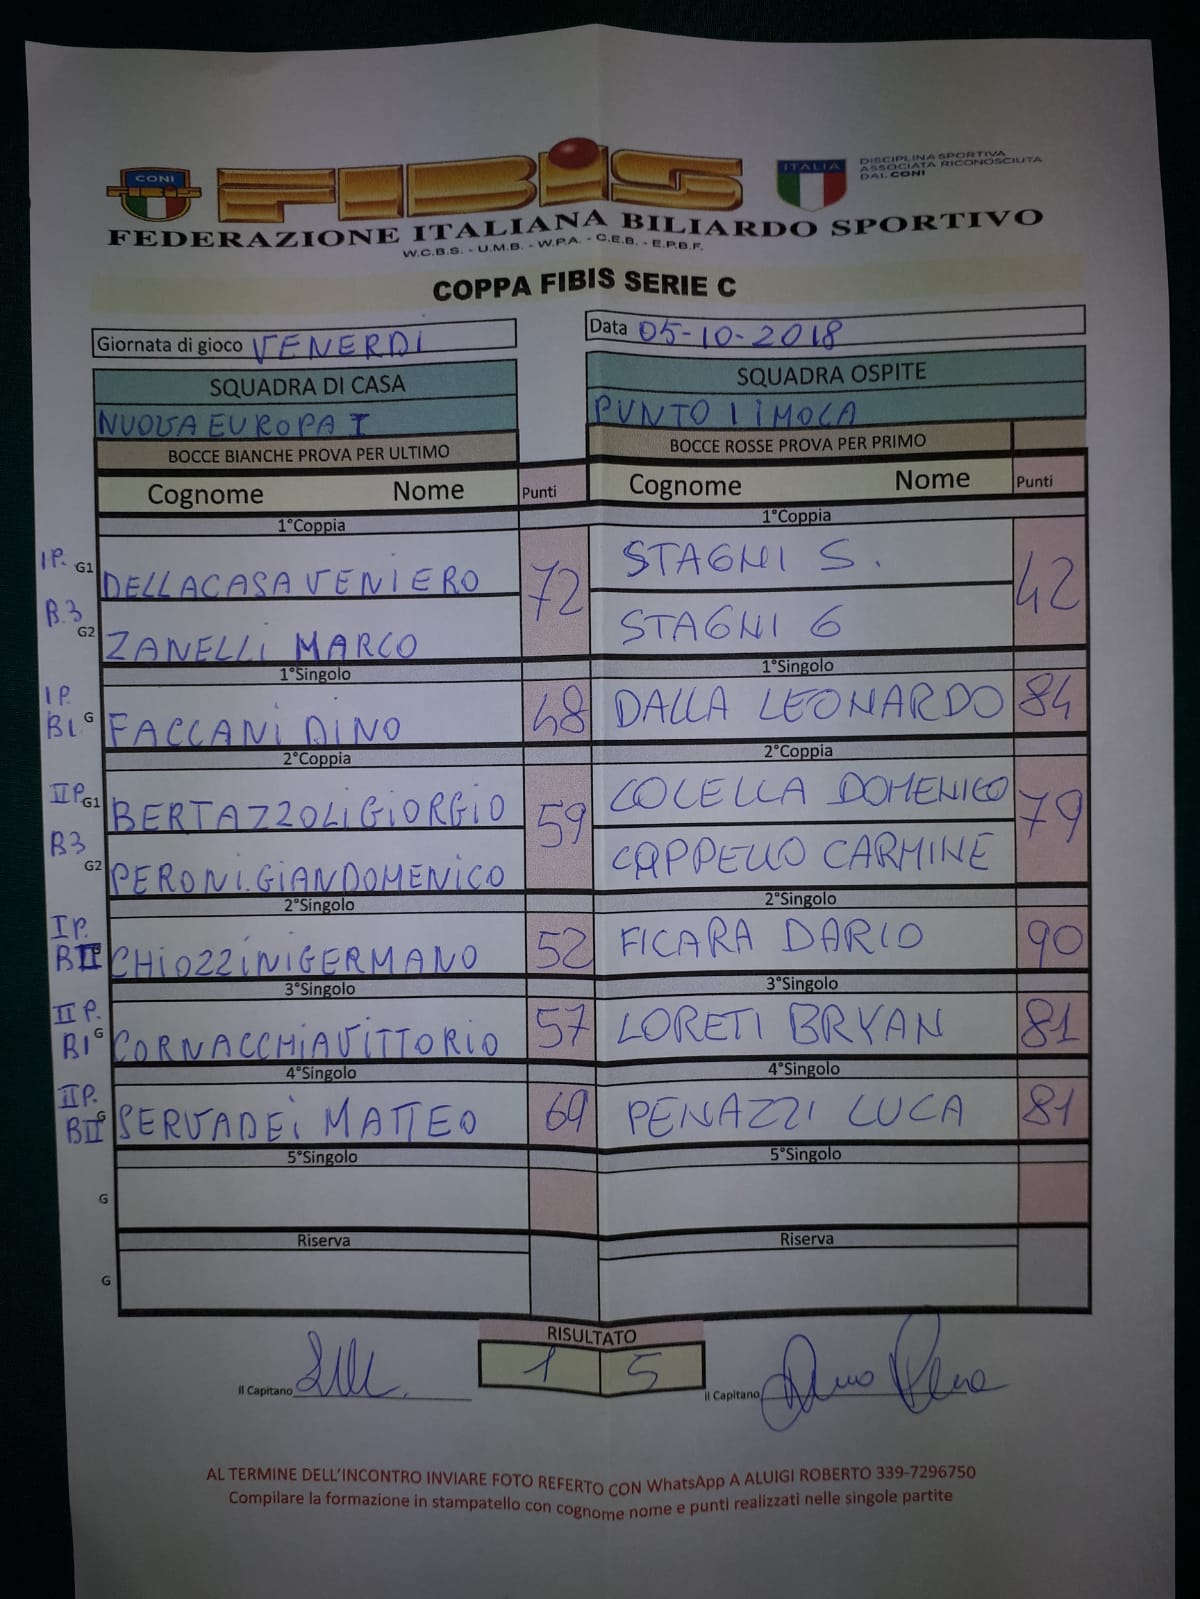 CONI
FIBIS
ITALIA
DISCIPLINA SPORTIVA
ASSOCIATA RICONOSCIUTA
DAL CONI
FEDERAZIONE ITALIANA BILIARDO SPORTIVO
W.C.B.S. - U.M.B. - W.P.A. - C.E.B. - E.P.B.F.
COPPA FIBIS SERIE C
Giornata di gioco VENERDÌ
Data 05-10-2018
SQUADRA DI CASA SQUADRA OSPITE
NUOVA EUROPA I PUNTO 1 IMOLA
BOCCE BIANCHE PROVA PER ULTIMO BOCCE ROSSE PROVA PER PRIMO
Cognome Nome Punti Cognome Nome Punti
1°Coppia 1°Coppia
IP. G1 DELLACASA VENIERO 72 STAGNI S. 42
B.3 G2 ZANELLI MARCO STAGNI G
1°Singolo 1°Singolo
IP. B1. G FACCANI DINO 48 DALLA LEONARDO 84
2°Coppia 2°Coppia
IIP. G1 BERTAZZOLI GIORGIO 59 COLELLA DOMENICO 79
B3 G2 PERONI.GIANDOMENICO CAPPELLO CARMINE
2°Singolo 2°Singolo
IP. BII CHIOZZINI GERMANO 52 FICARA DARIO 90
3°Singolo 3°Singolo
IIP. B1 G CORNACCHIA VITTORIO 57 LORETI BRYAN 81
4°Singolo 4°Singolo
IIP. BII G SERVADEI MATTEO 69 PENAZZI LUCA 81
5°Singolo 5°Singolo
G
Riserva Riserva
G
RISULTATO
1 5
Il Capitano
Il Capitano
AL TERMINE DELL'INCONTRO INVIARE FOTO REFERTO CON WhatsApp A ALUIGI ROBERTO 339-7296750
Compilare la formazione in stampatello con cognome nome e punti realizzati nelle singole partite